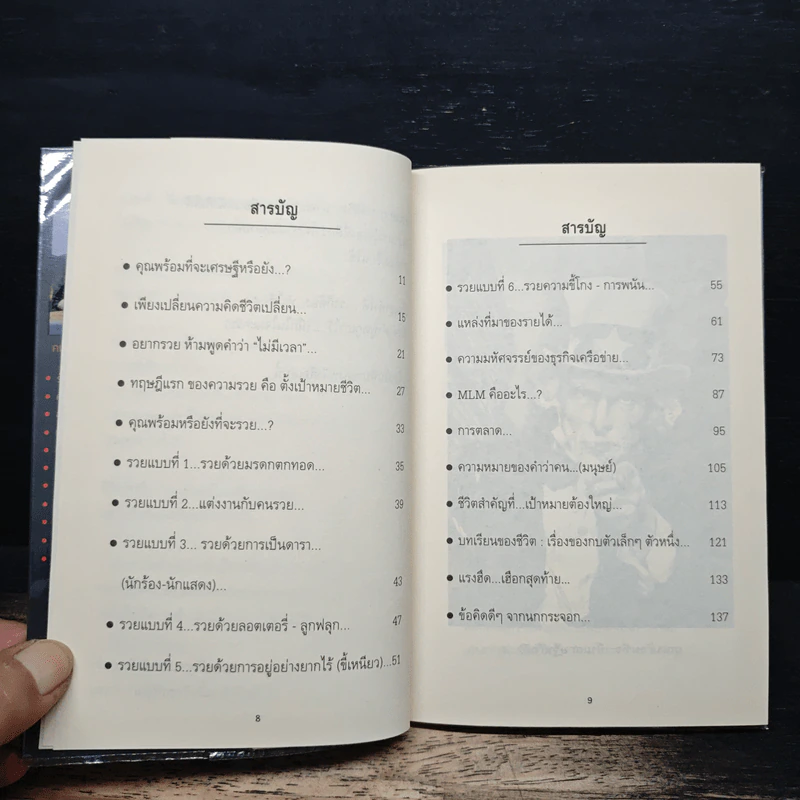 สารบัญ
● คุณพร้อมที่จะเศรษฐีหรือยัง...? 11
● เพียงเปลี่ยนความคิดชีวิตเปลี่ยน... 15
● อยากรวย ห้ามพูดคำว่า "ไม่มีเวลา"... 21
● ทฤษฎีแรก ของความรวย คือ ตั้งเป้าหมายชีวิต... 27
● คุณพร้อมหรือยังที่จะรวย...? 33
● รวยแบบที่ 1...รวยด้วยมรดกตกทอด... 35
● รวยแบบที่ 2...แต่งงานกับคนรวย... 39
● รวยแบบที่ 3... รวยด้วยการเป็นดารา...
(นักร้อง-นักแสดง)... 43
● รวยแบบที่ 4...รวยด้วยลอตเตอรี่ - ลูกฟลุก... 47
● รวยแบบที่ 5...รวยด้วยการอยู่อย่างยากไร้ (ขี้เหนียว)...51
8
สารบัญ
● รวยแบบที่ 6...รวยความขี้โกง - การพนัน... 55
● แหล่งที่มาของรายได้... 61
● ความมหัศจรรย์ของธุรกิจเครือข่าย... 73
● MLM คืออะไร...? 87
● การตลาด... 95
● ความหมายของคำว่าคน...(มนุษย์) 105
● ชีวิตสำคัญที่...เป้าหมายต้องใหญ่... 113
● บทเรียนของชีวิต : เรื่องของกบตัวเล็กๆ ตัวหนึ่ง... 121
● แรงฮึด...เฮือกสุดท้าย... 133
● ข้อคิดดีๆ จากนกกระจอก... 137
9